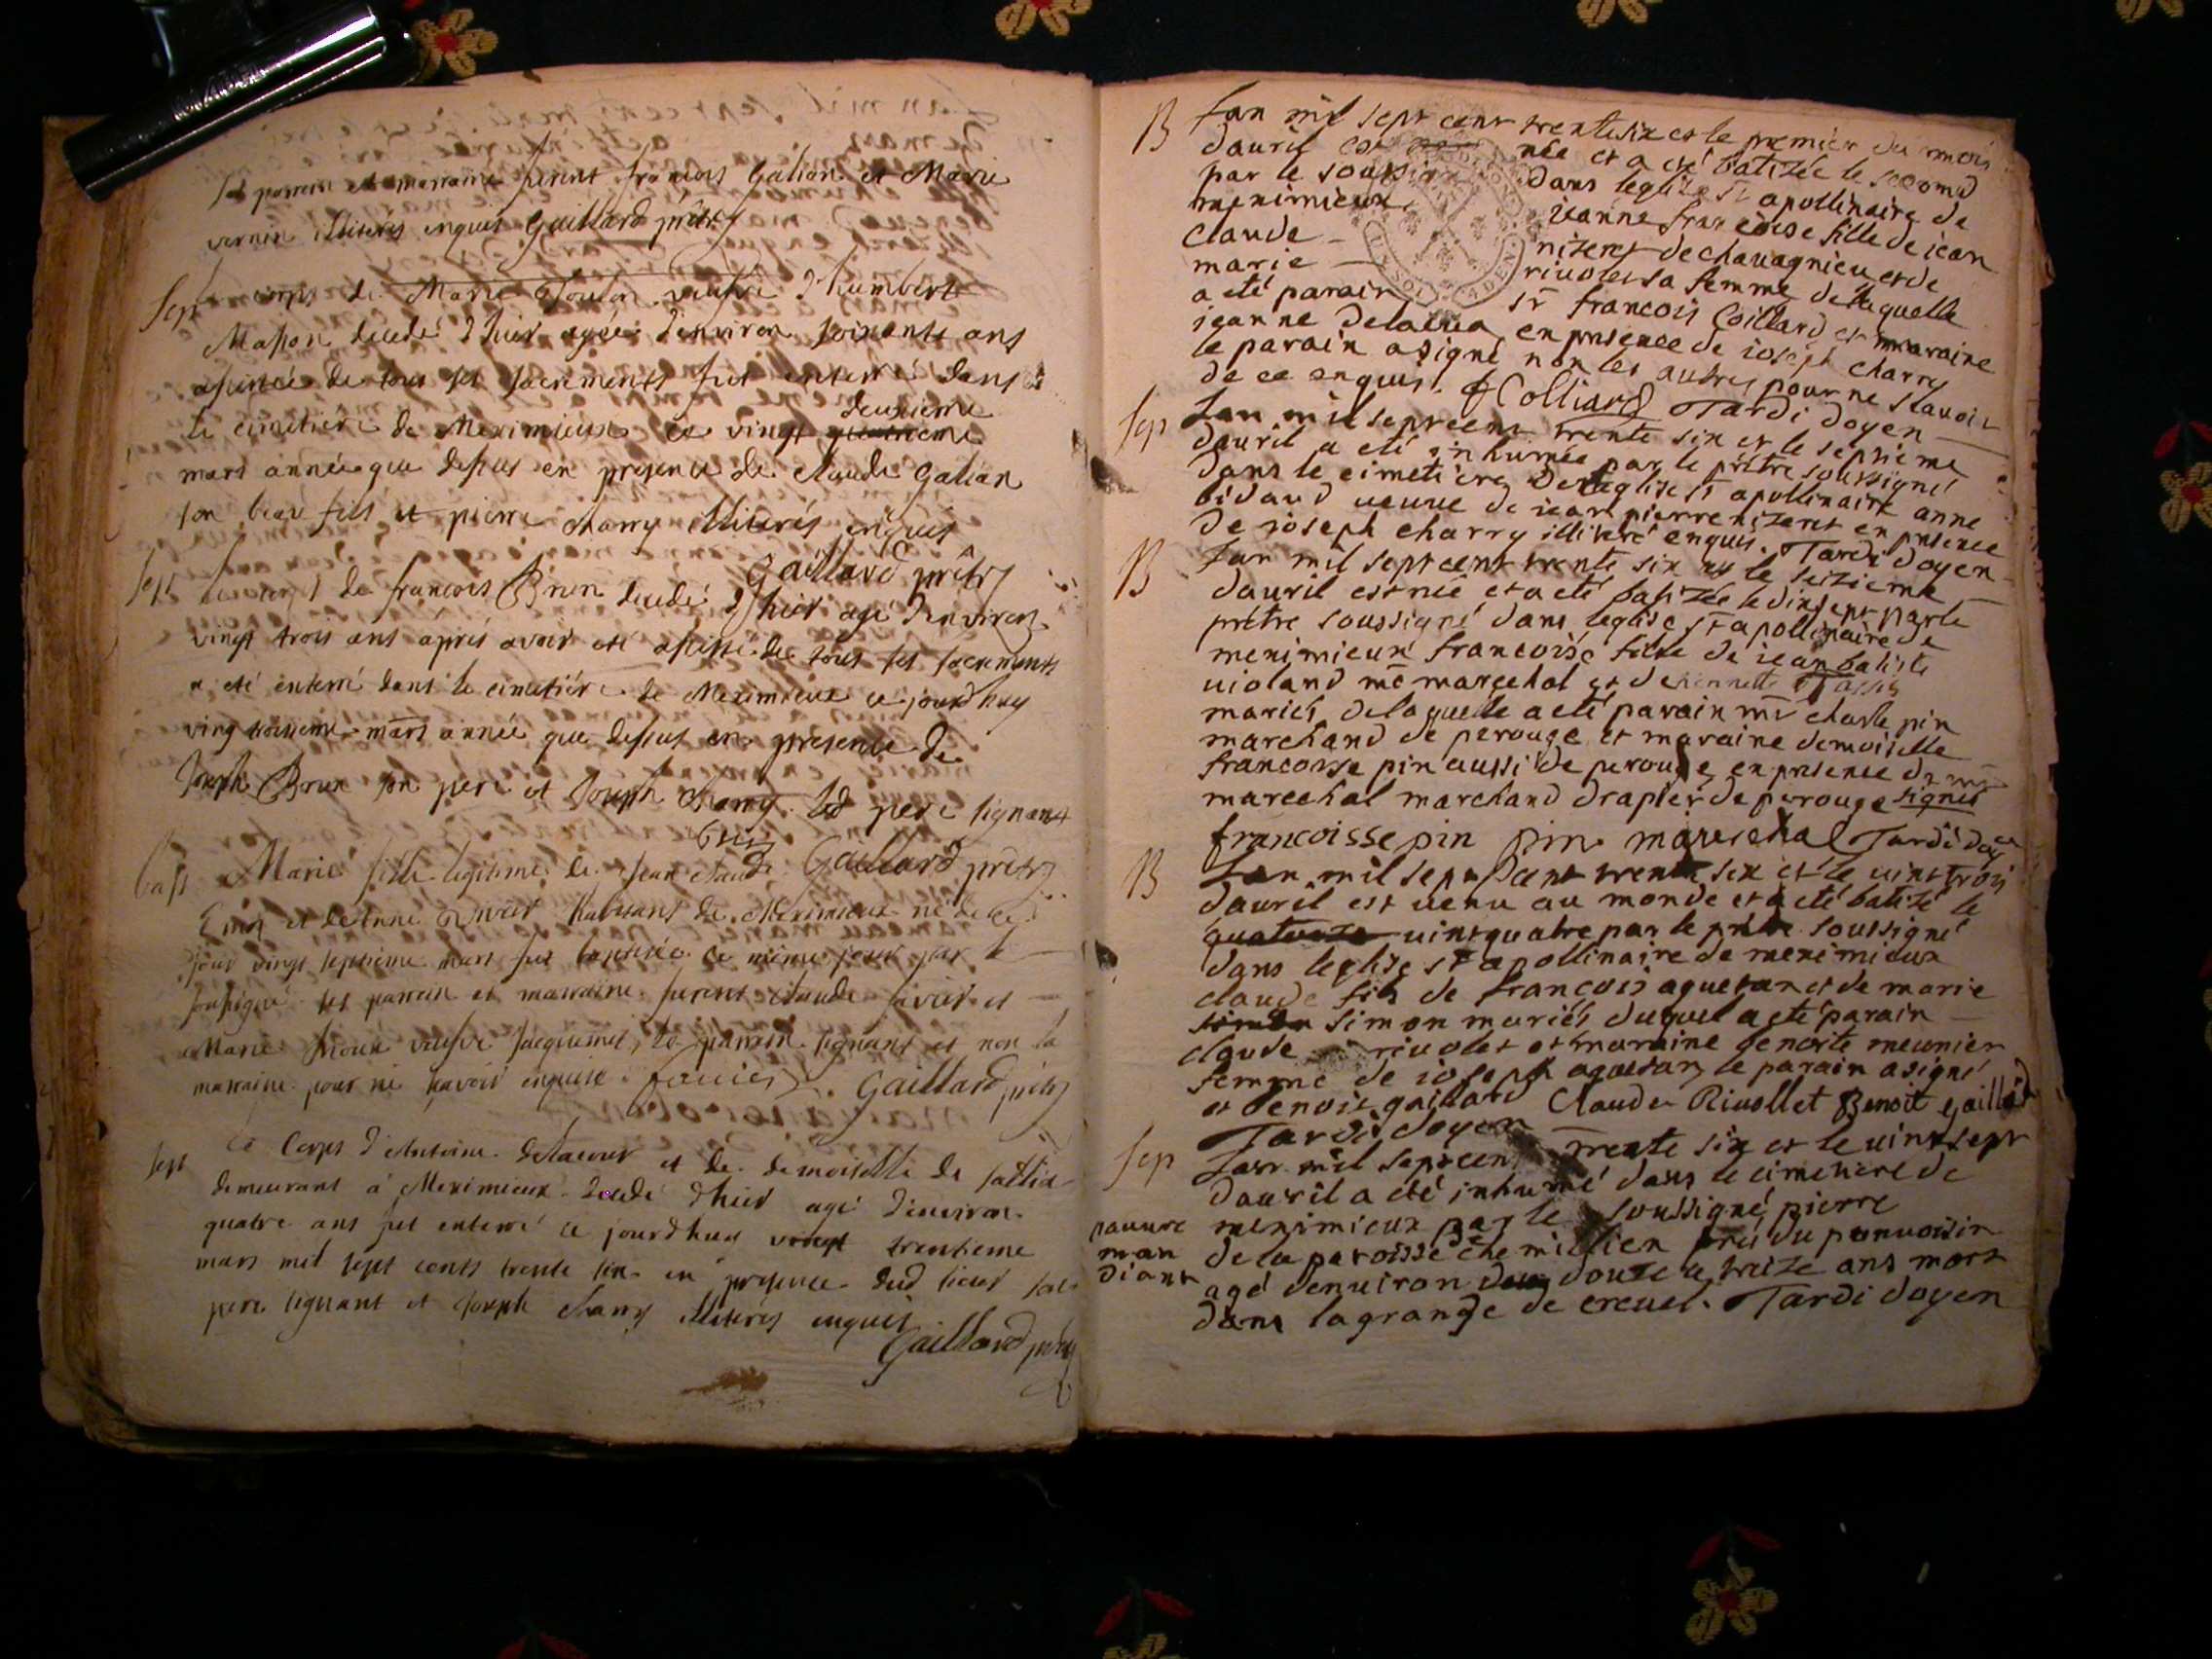 parrein et marraine furent francois Galian et Marie
vernin illiterés enquis Gaillard prêtre
Sep
corps de Marie veufve d'humbert
Masson decedé d'hier agée d'environ soixante ans
assistée de tous ses sacrements fut enterré dans
deuxieme
le cimetiére de Meximieux ce vingt quatrieme
mars année que dessus en presence de claude Galian
son beau fils et pierre charry illiterés enquis
Gaillard prêtre
Sept
Le corps de francois Brun decedé d'hier agé d'environ
vingt trois ans aprés avoir eté assisté de tous ses sacrements
a eté enterré dans le cimetiére de Meximieux ce jourdhuy
ving troisieme mars année que dessus en presence de
Joseph Brun son pere et Joseph charry led pere signant
Brun
Gaillard prêtre
bapt
Marie fille legitime de Jean claude
et de anne habitans de Meximieux né de ce
jour vingt septieme mars fut baptisée ce méme jour par le
soussigné ses parrein et marraine furent claude favier et
Marie veufve Jacquemet, le parrein signant et non la
marraine pour ne savoir enquise. favier. Gaillard prêtre
sept
Le Corps d'Antoine delacour et de demoiselle de
demeurant á Meximieux decedé d'hier agé d'environ
quatre ans fut enterré ce jourdhuy vingt trentieme
mars mil sept cents trente six en presence dud sieur
pere signant et Joseph charry illiterés enquis
Gaillard prêtre
B
Lan mil sept cent trente six et le premier du mois
dauril est née et a eté batizée le second
par le soussigné dans leglize st apollinaire de
meximieux jeanne francoise fille de jean
claude nizeret de chavagnieu et de
marie rivolet sa femme de laquelle
a eté parain sr francois Coillard et maraine
jeanne delacua en presence de joseph charry
le parain a signé non les autres pour ne scauoir
de ce enquis. f Colliard Tardi doyen
Sep
Lan mil sept cent trente six et le septieme
dauril a eté inhumée par le prétre soussigné
dans le cimetiére de leglise st apollinaire anne
bidaud ueuue de jean pierre nizeret en presence
de joseph charry illiteré enquis. Tardi doyen
B
Lan mil sept cent trente six et le seizieme
dauril est née et a eté batizée le dixsept par le
prétre soussigné dans leglise st apollinaire de
meximieux francoise fille de jean batiste
uioland me marechal et de
mariés de laquelle a eté parain mr charle pin
marchand de perouge et maraine demoiselle
francoise pin aussi de perouge en presence de mr
marechal marchand drapier de perouge signés
francoisse pin pin marechal Tardi doyen
B
Lan mil sept cent trente six et le uint trois
dauril est uenu au monde et a eté batizé le
quatorze uint quatre par le prétre soussigné
dans leglize st apollinaire de meximieux
claude fils de francois aguetan et de marie
simon simon mariés duquel a eté parain
claude riuolet et maraine benoite meunier
femme de joseph aguetan le parain a signé
et benoit gaillard Claude Riuollet Benoit gaillard
Tardi doyen
Sep
Lan mil sept cent trente six et le uint sept
dauril a eté inhumé dans le cimetiere de
pauure
man
diant
meximieux par le soussigné pierre
de la paroisse de chemillien pré du ponuoisin
agé denuiron deu douze a treize ans mort
dans la grange de creuel. Tardi doyen